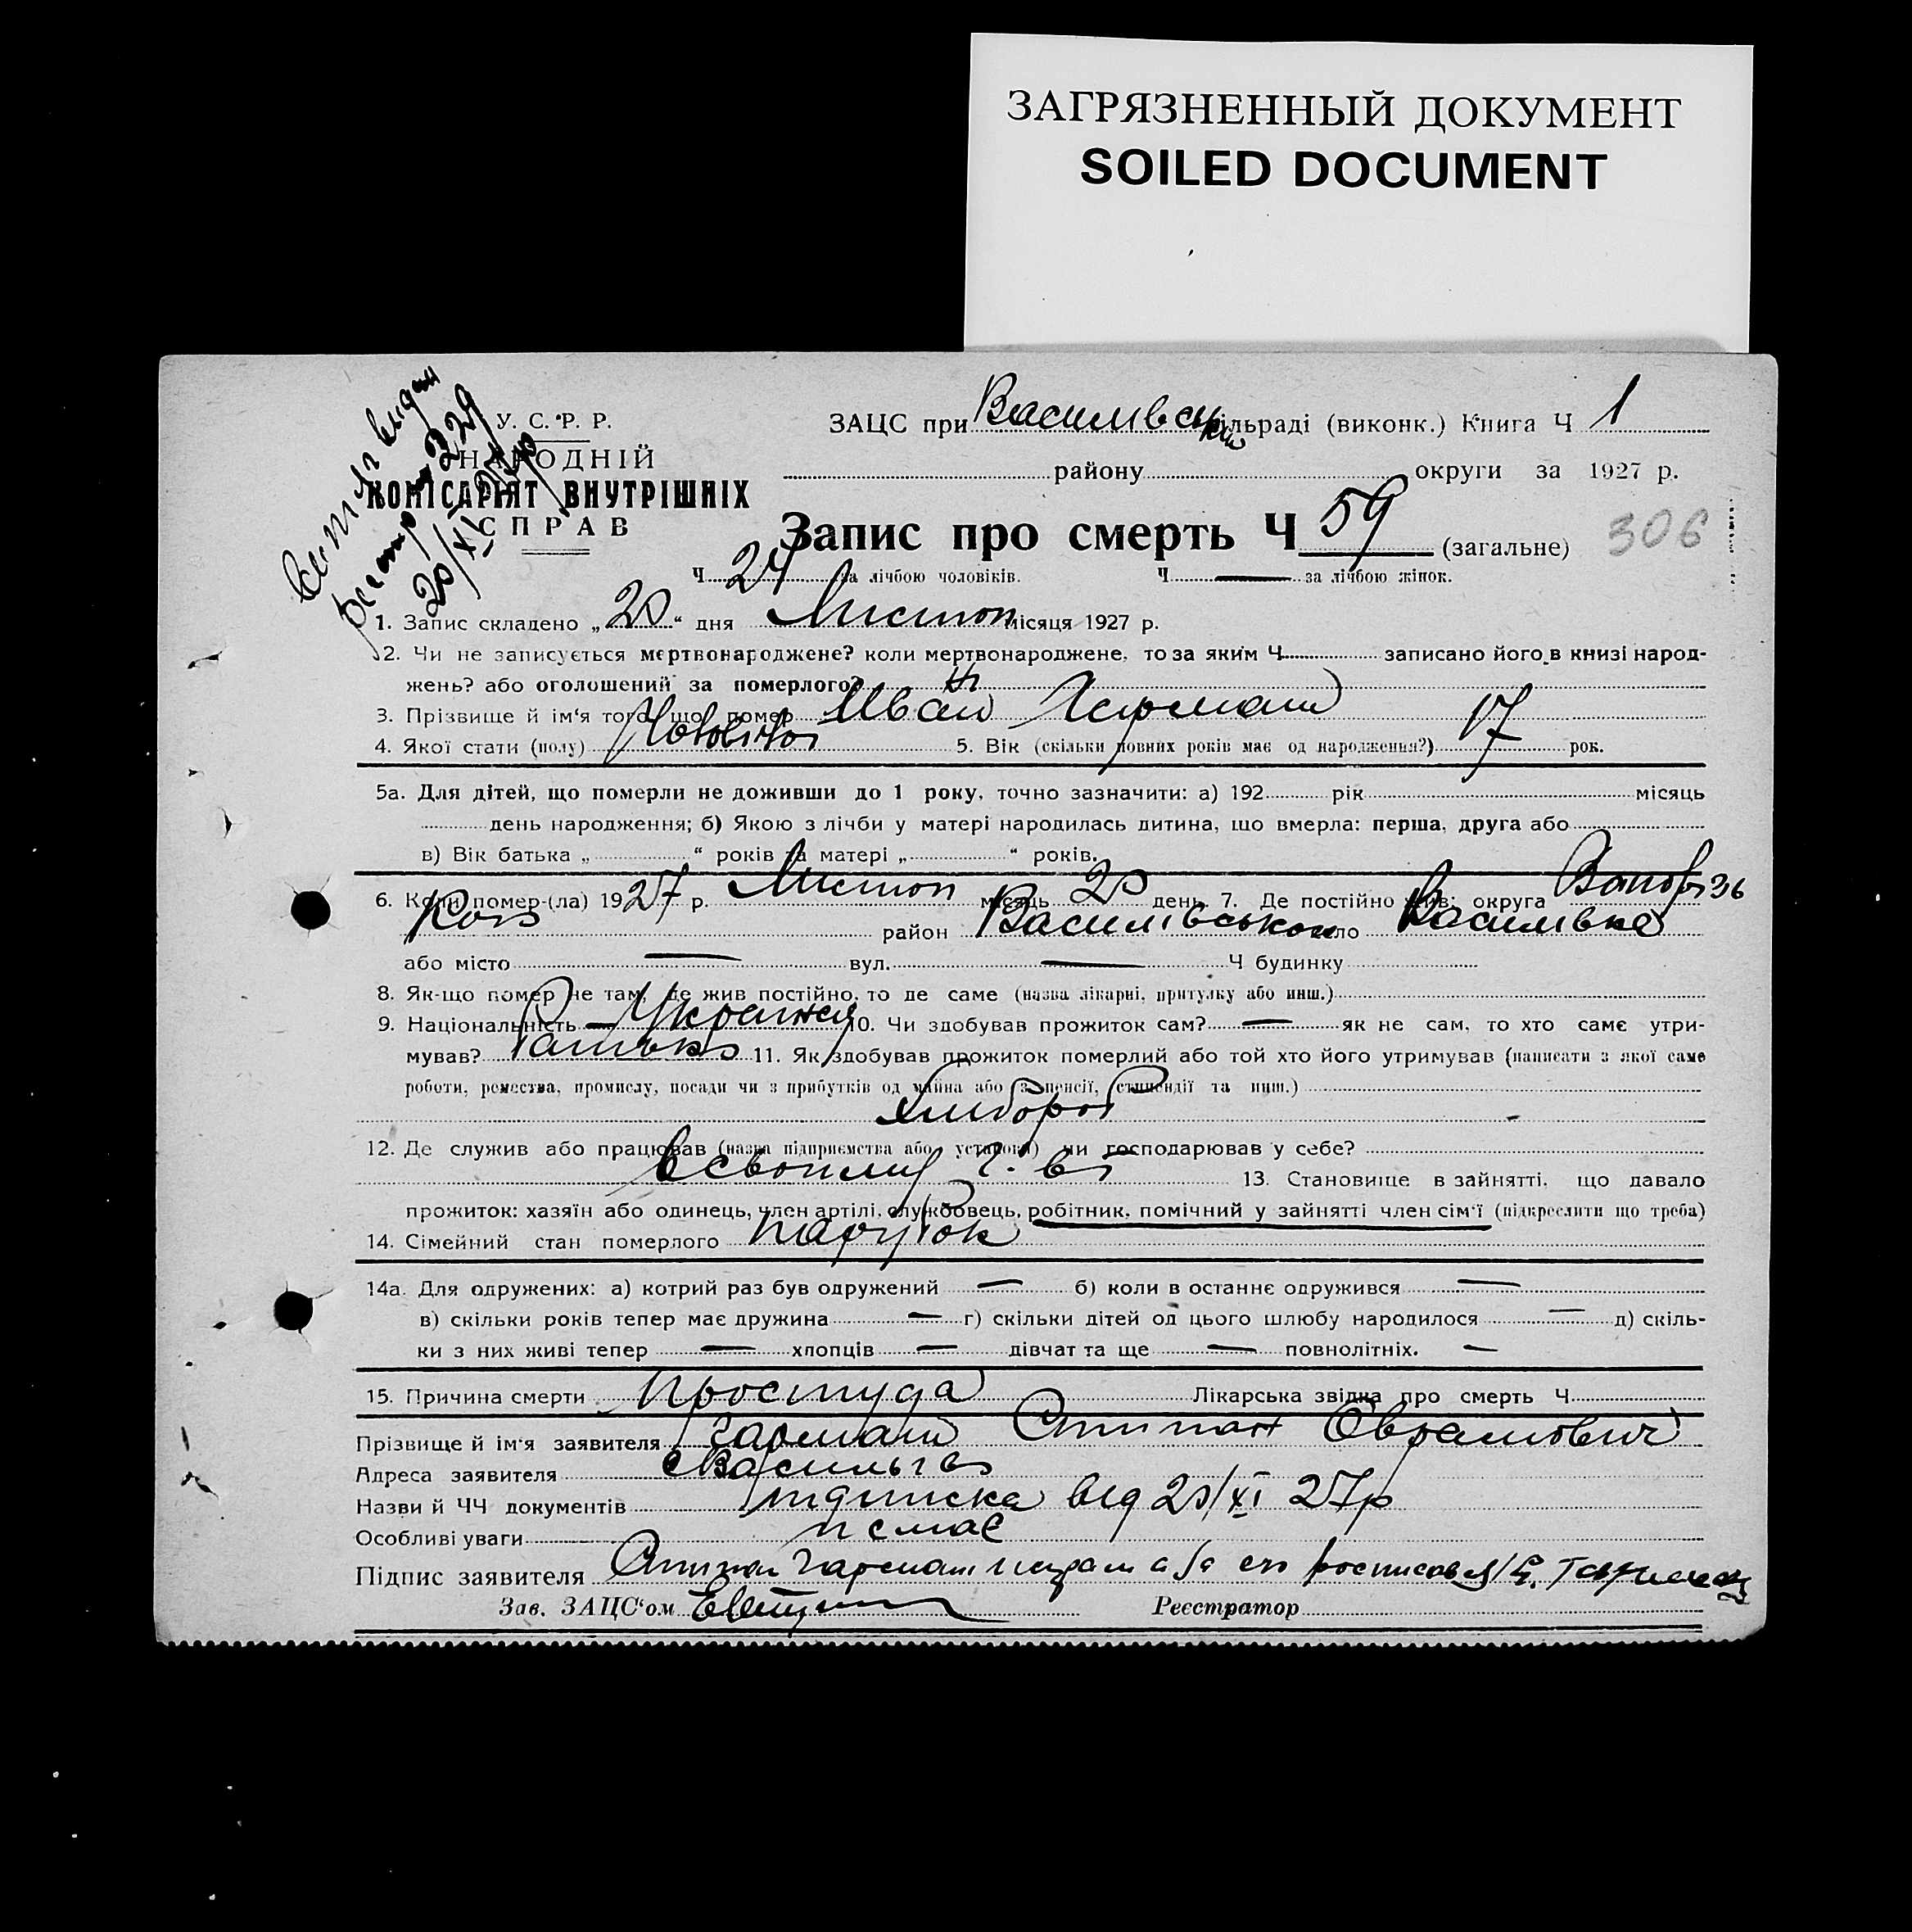 ЗАГРЯЗНЕННЫЙ ДОКУМЕНТ
SOILED DOCUMENT
У. С. Р. Р.
НАРОДНІЙ
КОМІСАРІЯТ ВНУТРІШНІХ
СПРАВ
витяг видан
20/XI 27 р
ЗАЦС при Василівській сільраді (виконк.) Книга Ч 1
району округи за 1927 р.
Запис про смерть Ч 59 (загальне) 306
Ч 24 за лічбою чоловіків. Ч — за лічбою жінок.
1. Запис складено „20“ дня Листоп місяця 1927 р.
2. Чи не записується мертвонароджене? коли мертвонароджене, то за яким Ч записано його в книзі народ-
жень? або оголошений за померлого?
3. Прізвище й ім‘я того, що помер Іван Гармаш
4. Якої стати (полу) Чоловічої 5. Вік (скільки повних років має од народження?) 17 рок.
5а. Для дітей, що померли не доживши до 1 року, точно зазначити: а) 192 рік місяць
день народження; б) Якою з лічби у матері народилась дитина, що вмерла: перша, друга або
в) Вік батька „ “ років та матері „ “ років.
6. Коли помер-(ла) 1927 р. Листоп місяць 20 день. 7. Де постійно жив: округа Запоріз
кого район Василівського село Василівка
або місто — вул. — Ч будинку
8. Як-що помер не там, де жив постійно, то де саме (назва лікарні, притулку або инш.)
9. Національність Україна 10. Чи здобував прожиток сам? — як не сам, то хто саме утри-
мував? Батько 11. Як здобував прожиток померлий або той хто його утримував (написати з якої саме
роботи, ремества, промислу, посади чи з прибутків од майна або з пенсії, стипендії та инш.)
хлибороб
12. Де служив або працював (назва підприємства або установи) чи господарював у себе?
всвоїому г. ві 13. Становище в зайнятті, що давало
прожиток: хазяїн або одинець, член артілі, службовець, робітник, помічний у зайнятті член сім‘ї (підкреслити що треба)
14. Сімейний стан померлого парубок
14а. Для одружених: а) котрий раз був одружений — б) коли в останнє одружився —
в) скільки років тепер має дружина — г) скільки дітей од цього шлюбу народилося — д) скіль-
ки з них живі тепер — хлопців — дівчат та ще — повнолітніх. —
15. Причина смерти простуда Лікарська звідка про смерть Ч
Прізвище й ім‘я заявителя Гармаш Степан Оврамович
Адреса заявителя
Назви й ЧЧ документів підписка від 20/XI 27р
Особливі уваги немає
Підпис заявителя Степан Гармаш
Зав. ЗАЦС‘ом Реєстратор